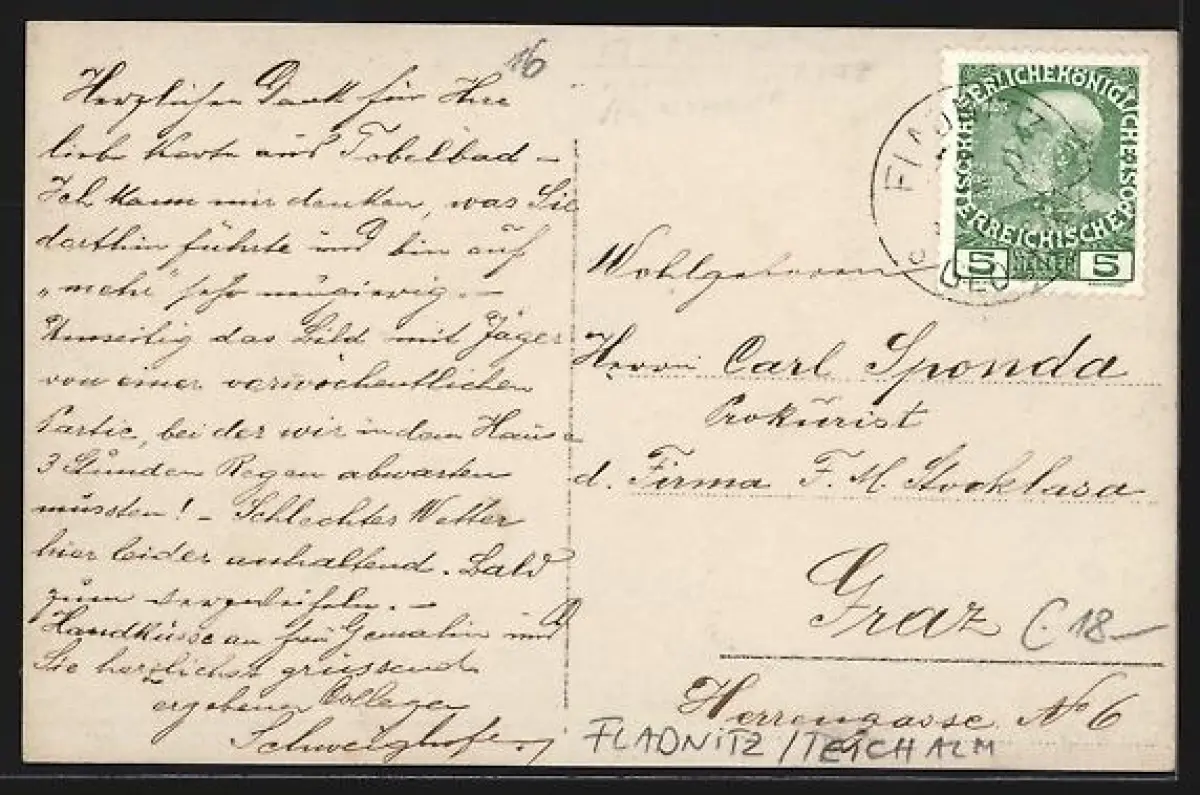 16
Herzlichen Dank für Ihre
liebe Karte aus Tobelbad –
Ich kann mir denken, was Sie
dorthin führte und bin auf
„mehr" sehr neugierig. –
Umseitig das Bild mit Jäger
von einer vorwöchentlichen
Partie, bei der wir in dem Hause
3 Stunden Regen abwarten
mussten! – Schlechtes Wetter
hier leider anhaltend. Bald
zum verzweifeln. –
Handküsse an Frau Gemahlin und
Sie herzlichst grüssend
ergebener Collega
Schweighofer
KAISERLICHE KÖNIGLICHE ÖSTERREICHISCHE POST
5 HELLER 5
FLAD
Wohlgeboren
Herrn Carl Sponda
Prokūrist
d. Firma F. M. Stocklasa
Graz
C. 18–
Herrengasse No 6
FLADNITZ / TEICHALM